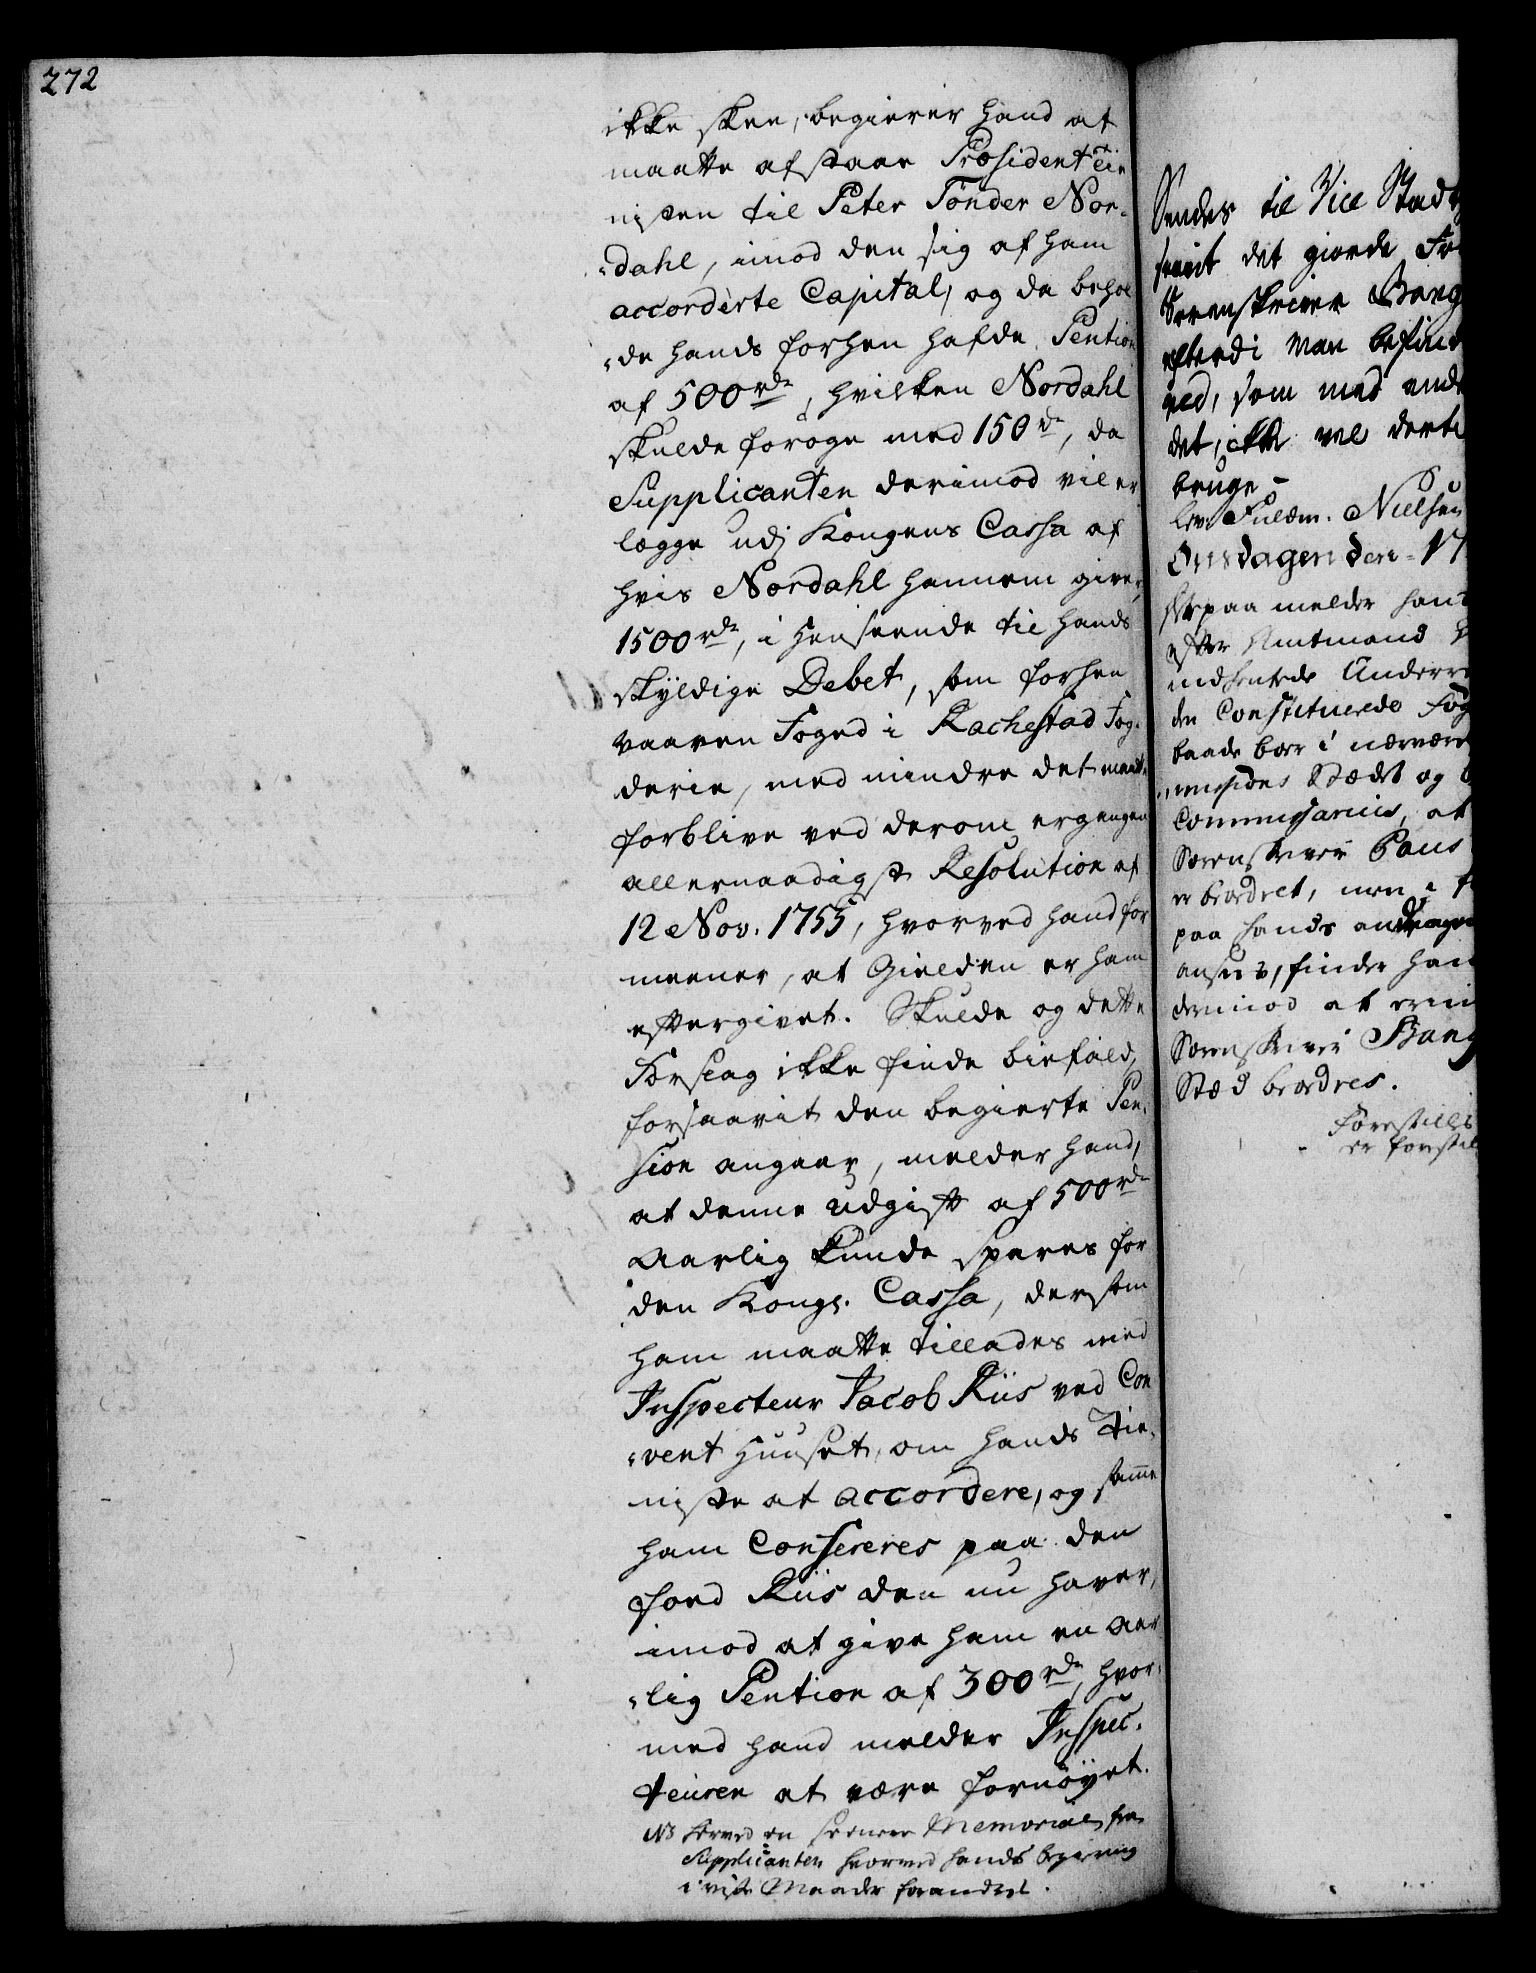 272
ikke skee, begierer hand at
maatte afstaae Præsident tie
nisten til Peter Tønder Nor-
dahl, imod den sig af ham
accorderte Capital, og da behol
de hands forhen hafde Pention
af 500 rdr, hvilken Nordahl
skulde forøge med 150 rdr, da
Supplicanten derimod vil er
lægge udj Kongens Cassa af
hvis Nordahl hannem giver,
1500 rdr, i Henseende til hands
skyldige Debet, som forhen
vaaren Foged i Rachestad Fog-
derie, med mindre det maatte
forblive ved derom ergangen
allernaadigst Resolution af
12 Nov. 1755, hvorved hand for
meener, at Gielden er ham
eftergivet. Skulde og dette
Forslag ikke finde biefald,
forsaavit den begierte Pen-
sion angaaer, melder hand,
at denne udgift af 500 rdr
Aarlig kunde spares for
den Kongl. Cassa, dersom
ham maatte tillades med
Inspecteur Jacob Riis ved Con
vent Huuset, om hands Tie-
niste at accordere, og samme
ham Confereres paa den
foed Riis den nu haver,
imod at give ham en aar
lig Pention af 300 rdr, hvor-
med hand melder Inspec-
teuren at være fornøyet.
NB herved en seenere Memorial fra
Supplicanten hvorved hands begiering
i viste Maader forandres.
Sendes til Vice Stad
saavit det giorde
Sorenskriver Bang
efterdi man befin
ved, som med
det, ikke vel
bruge
lev. Fuldm. Nielsen
Onsdagen den 17
Herpaa melder han
efter Amtmand
indhentede Underr
den Constituerede Fog
baade bør i nærvær
Stædet og
Commissarius, at
Sorenskriver Paus
er beordret, men i
paa hands andragen
ansees, finder han
derimod at erin
Sorenskriver Bang
Stæd beordres.
Forestilles
er forestil